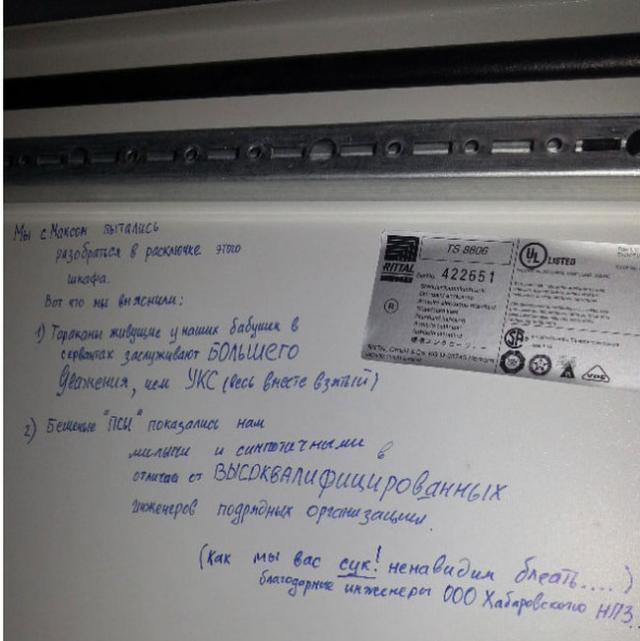 Мы с Максом пытались
разобраться в расключке этого
шкафа.
Вот что мы выяснили:
1) Тараканы живущие у наших бабушек в
сервантах заслуживают БОЛЬШЕГО
Уважения, чем УКС (весь вместе взятый)
2) Бешеные "ПСЫ" показались нам
милыми и симпотичными в
отличаи от ВЫСОКВАЛИФИЦИРОВАННЫХ
инженеров подрядных организаций.
(Как мы вас сук! ненавидим блеать....)
благодарные инженеры ООО Хабаровского НПЗ.
RITTAL
TS 8806
422651
UL LISTED